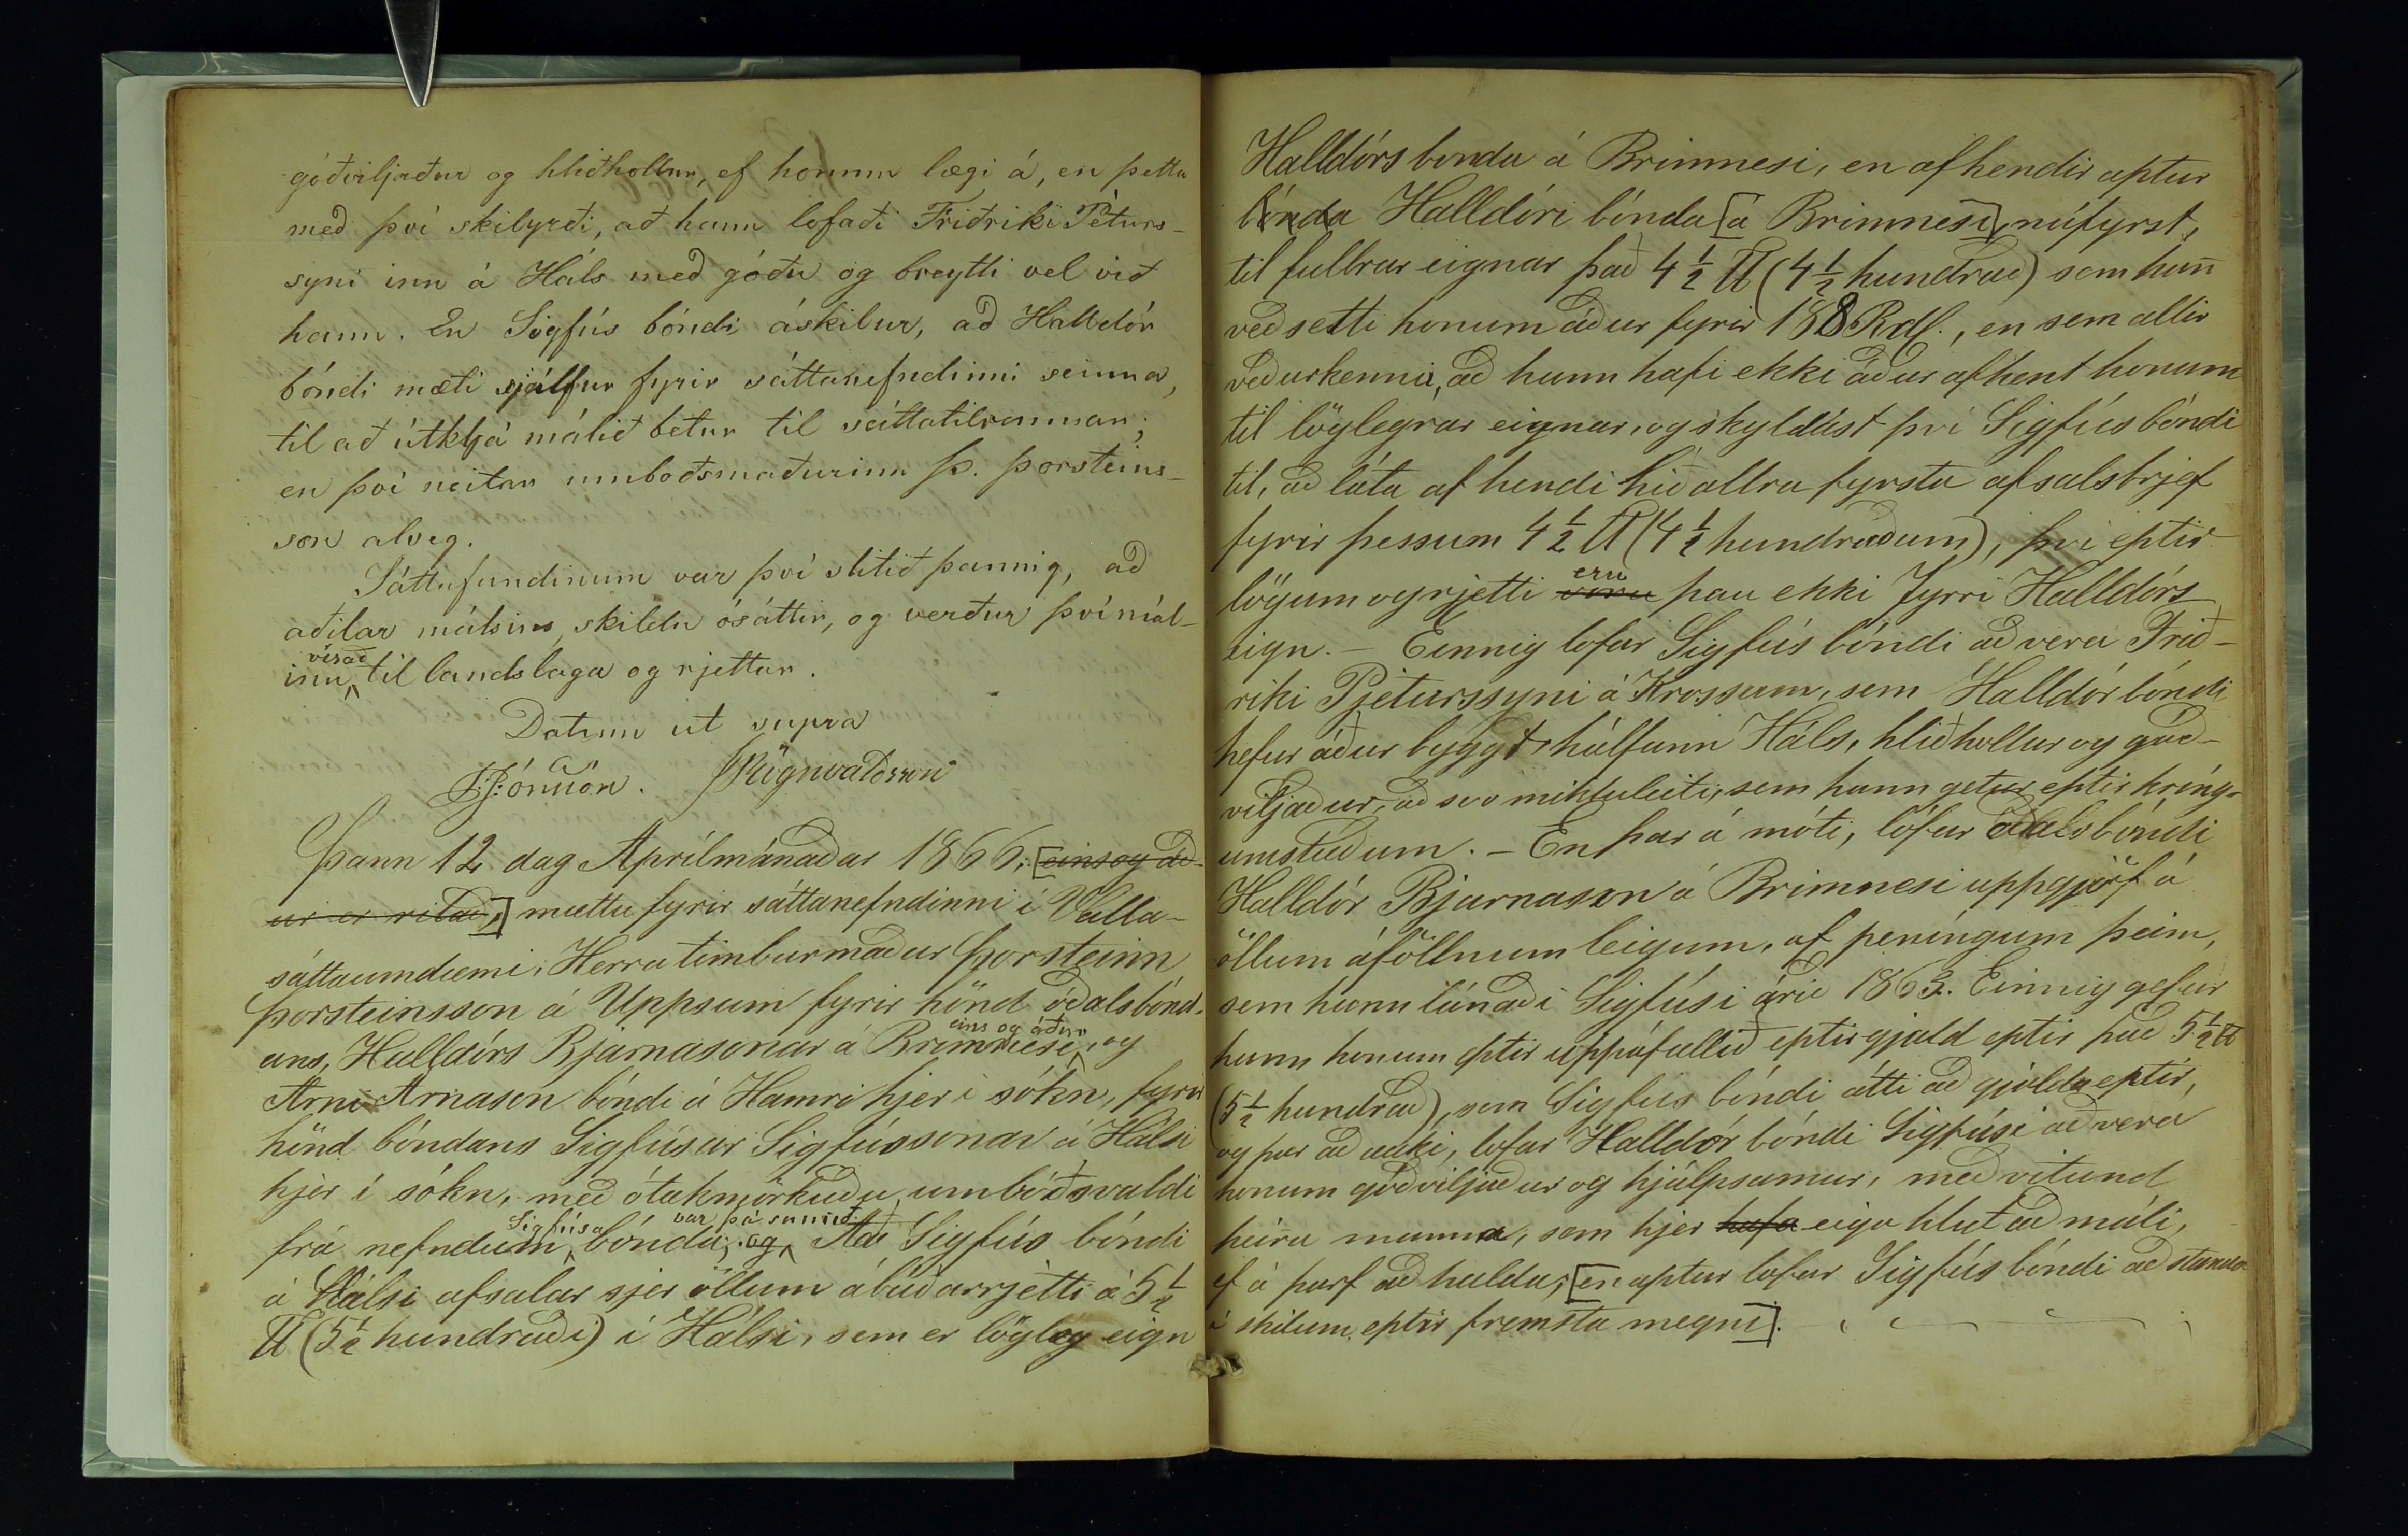 góðviljaður og hliðhollur, ef honum lægi á, en þetta
með því skilyrði, að hann lofaði Friðriki Péturs-
syni inn á Háls með góðu og breytti vel við
hann. En Sigfús bóndi áskilur, að Halldór
bóndi mæti sjálfur fyrir sáttanefndinni seinna,
til að útkljá málið betur til sáttatilraunar;
en því neitar umboðsmaðurinn Þ. Þorsteins-
son alveg.
Sáttafundinum var því slitið þannig, að
aðilar málsins skildu ósáttir, og verður því mál-
inu vísað til landslaga og rjettar.
Datum ut supra
J. Jónsson. JRögnvaldsson
Þann 12 dag Aprílmánaðar 1866, [eins og áð-
ur er ritað,] mættu fyrir sáttanefndinni í Valla-
sáttaumdæmi, Herra timburmaður Þorsteinn
Þorsteinsson á Uppsum fyrir hönd óðalsbónd-
ans, Halldórs Bjarnasonar á Brimnesi eins og áður, og
Arni Arnason bóndi á Hamri hjer í sókn, fyrir
hönd bóndans Sigfúsar Sigfússonar á Hálsi
hjer í sókn, með ótakmörkuðu umboðsvaldi
frá nefndum Sigfúsa bónda, og var þá samið. Að Sigfús bóndi
á Hálsi afsalar sjer öllum ábúðarrjètti á 5 1/2
H (5 1/2 hundraði) í Hálsi, sem er lögleg eign
Halldórs bonda á Brimnesi, en afhendir aptur
bónda Halldóri bónda [á Brimnesi], núfyrst,
til fullrar eignar það 4 1/2 H (4 1/2 hundrað) sem hann
veðsetti honum áður fyrir 188 Rdl., en sem allir
veðurkenna, að hann hafi ekki áður afhent honum
til löglegrar eignar, og skyldast því Sigfús bóndi
til, að láta af hendi hið allra fyrsta afsalsbrjef
fyrir þessum 4 1/2 H (4 1/2 hundruðum), því eptir
lögum og rjetti voru eru þau ekki fyrri Halldórs
eign. – Einnig lofar Sigfús bóndi að vera Frið-
riki Pjeturssyni á Krossum, sem Halldór bóndi
hefur áður byggt hálfann Háls, hliðhollur og góð-
viljaður, að svo mikluleiti, sem hann getur eptir kríng-
umstæðum. – En þar á móti, lofar óðalsbóndi
Halldór Bjarnason á Brimnesi uppgjöf á
öllum áföllnum leigum, af peníngum þeim,
sem hann lánaði Sigfúsi árið 1863. Einnig gefur
hann honum eptir uppáfallið eptirgjald eptir það 5 1/2 H
(5 1/2 hundrað), sem Sigfús bóndi átti að gjalda eptir,
og þar að auki, lofar Halldór bóndi Sigfúsi að vera
honum góðviljaður og hjálpsamur, með vitund
þeirra manna, sem hjer hafa eiga hlut að máli,
ef á þarf að halda; [en aptur lofar Sigfús bóndi að standa
í skilum eptir fremsta megni].